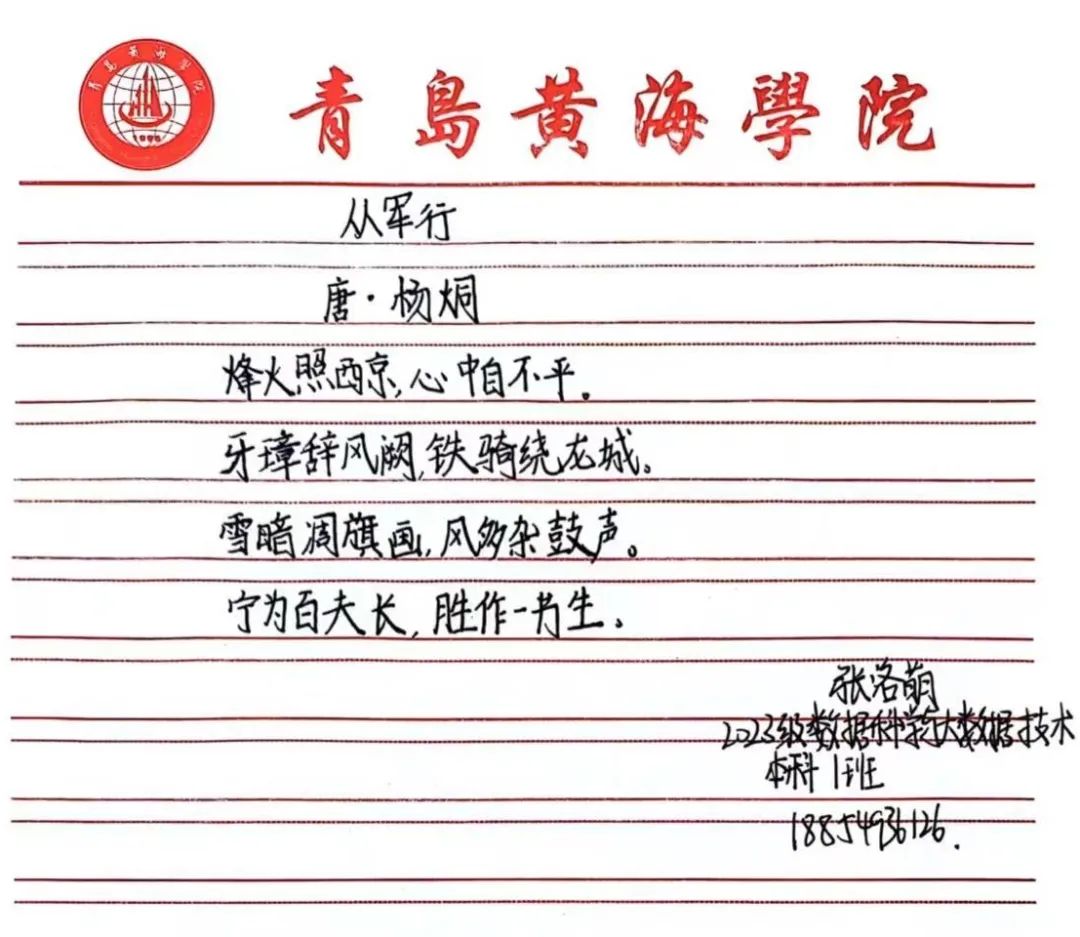 青岛黄海學院
青岛黄海学院
1996
从军行
唐·杨炯
烽火照西京,心中自不平。
牙璋辞风阙,铁骑绕龙城。
雪暗凋旗画,风多杂鼓声。
宁为百夫长,胜作一书生。
张洛萌
2023级数据科学与大数据技术
本科1班
18854936126.